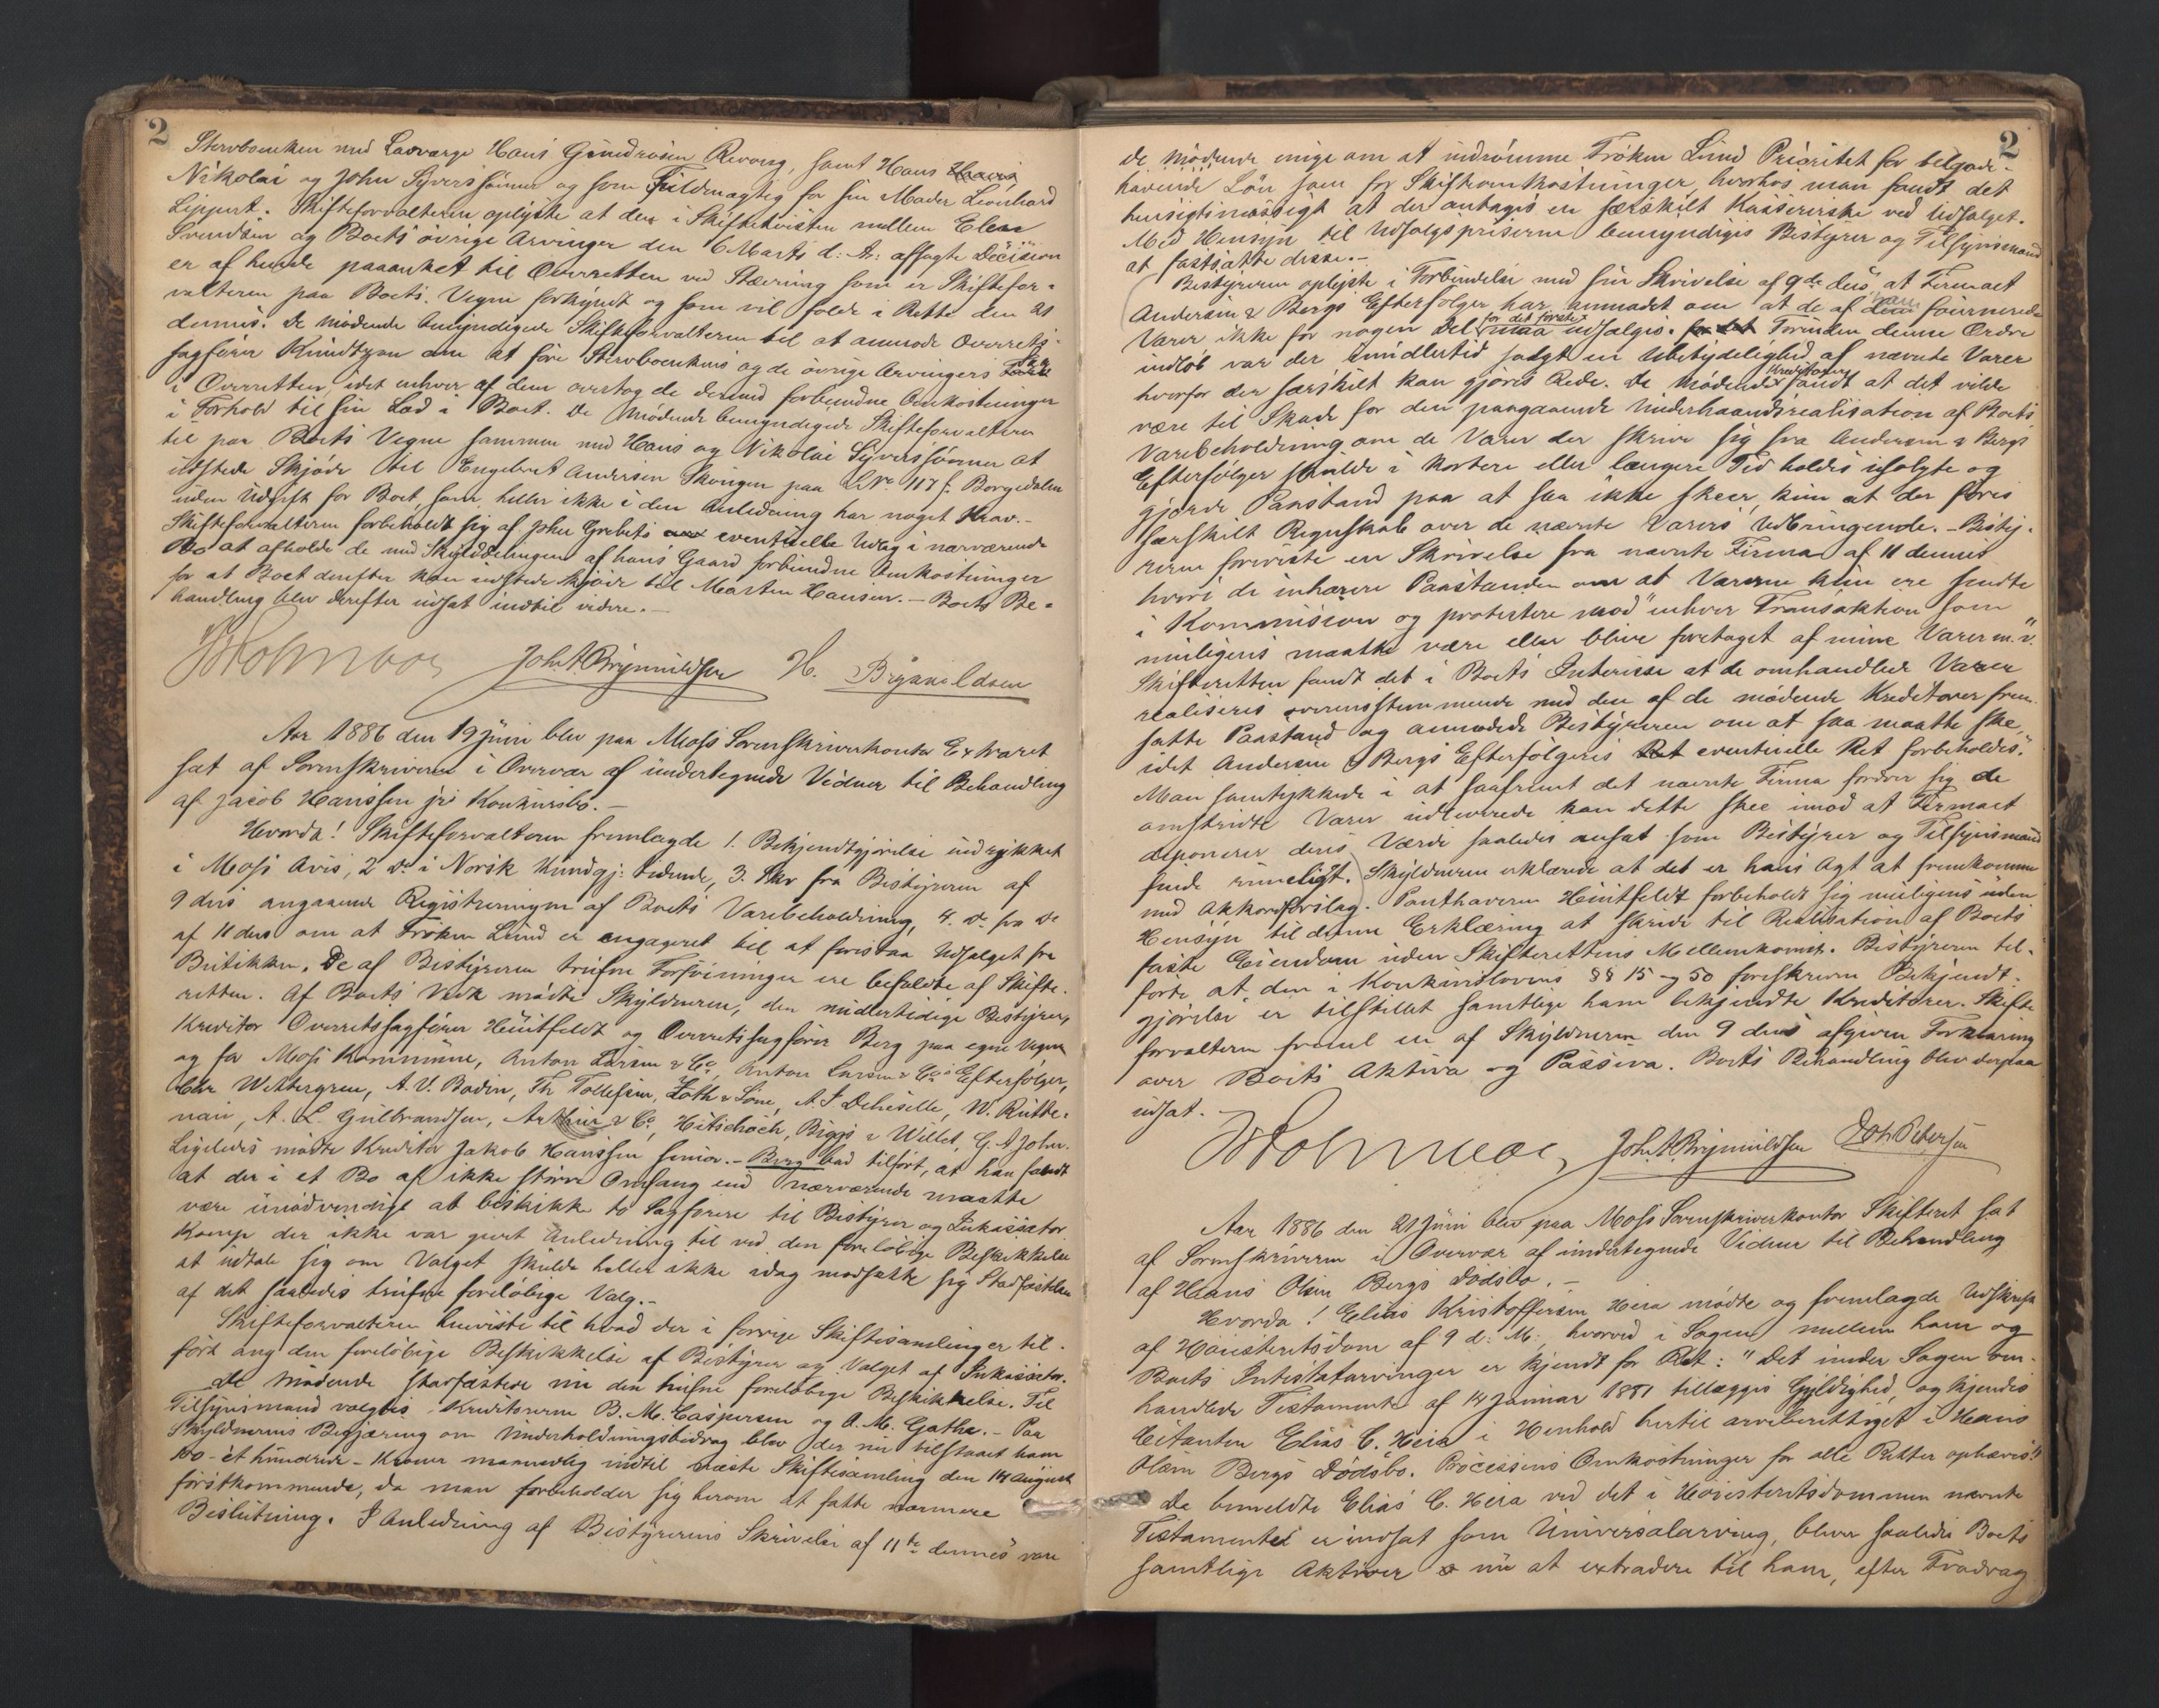 2
Stervboenken med Lavværge Hans Gundrosen Revoug, samt Hans
Nikolai og John Syverssønner og som Fuldmægtig for sin Moder Leonhard
Lippert. Skifteforvalteren oplyste at den i Skiftetvisten mellem Elen
Svendsen og Boets øvrige Arvinger den 6 Marts d: A: afsagte Decision
er af hende paaanket til Overretten ved Stævning som er Skiftefor-
valteren paa Boets Vegne forkyndt og som vil falde i Rette den 21
dennes. De Mødende bemyndigede Skifteforvalteren til at anmode Overrets-
sagfører Knudtzon om at føre Stervboenkens og de øvrige Arvingers
i Overretten, idet enhver af dem overtog de dermed forbundne Omkostninger
i Forhold til sin Lod i Boet. De Mødende bemyndigede Skifteforvalteren
til paa Boets Vegne sammen med Hans og Nikolai Syverssønner at
udstede Skjøde til Engebret Andersen Skougen paa L.No 117 f. Borgedalen
uden Udgift for Boet, som heller ikke i den Anledning har noget Krav.-
Skifteforvalteren forbeholdt sig af John Grebets eventuelle Udlæg i nærværende
Bo at afholde de med Skylddelingen af hans Gaard forbundne Omkostninger
for at Boet derefter kan udstede Skjøde til Martin Hansen. - Boets Be-
handling blev derefter udsat indtil videre.-
Joh A Brynnildsen H. Brynnildsen
Aar 1886 den 19 Juni blev paa Moss Sorenskriverkontor Extraret
sat af Sorenskriveren i Overvær af undertegnede Vidner til Behandling
af Jacob Hanssen jrs Konkursbo.-
Hvorda! Skifteforvalteren fremlagde 1. Bekjendtgjørelse indrykket
i Moss Avis, 2 do i Norsk Kundgj: tidende, 3. Skr fra Bestyreren af
9 dns angaaende Registreringen af Boets Varebeholdning, 4. do fra do
af 11 dns om at Frøken Lund er engageret til at forestaa Udsalget fra
Butikken. De af Bestyreren trufne Forføininger ere befaldte af Skifte-
retten. Af Boets Vedk mødte Skyldneren, den midlertidige Bestyrer,
Kreditor Overretssagfører Heuitfeldt og Overretssagfører Berg paa egne Vegne
og for Moss Kommune, Anton Larsen & Co, Anton Larsen & Co's Efterfølger,
Carl Wettergren, A. V. Bodin, Th Tollefsen, Loth & Søne, A. S Deheselle, W. Rutte-
nau, A. L. Gulbrandsen, Arthur & Co, Hitschoch, Biggs & Willet, G. A John.
Ligeledes mødte Kreditor Jakob Hanssen senior.- Berg bad tilført, at han fandt
at der i et Bo af ikke større Omfang end nærværende maatte
være unødvendigt at beskikke to Sagførere til Bestyrer og Inkassator
Komp der ikke var givet Anledning til ved den foreløbige Beskikkelse
at udtale sig om Valget skulde heller ikke idag modsætte sig Stadfæstelsen
af det saaledes trufne foreløbige Valg.-
Skifteforvalteren henviste til hvad der i forrige Skiftesamling er til-
ført ang den foreløbige Beskikkelse af Bestyrer og Valget af Inkassator.
De Mødende stadfæstede nu den trufne foreløbige Beskikkelse. Til
Tilsynsmænd valgtes Kreditorerne B. M. Caspersen og A. M. Gathe.- Paa
Skyldnerens Begjæring om Underholdningsbidrag blev der nu tilstaaet ham
100 - et hundrede - Kroner maanedlig indtil næste Skiftesamling den 14 August
førstkommende, da man forbeholder sig herom at fatte nærmere
Beslutning. I Anledning af Bestyrerens Skrivelse af 11te dennes vare
2
de Mødende enige om at indrømme Frøken Lund Prioritet for tilgode-
havende Løn som for Skifteomkostninger, hvorhos man fandt det
hensigtsmæssigt at der antages en særskilt Kassererske ved Udsalget.
Med Hensyn til Udsalgspriserne bemyndiges Bestyrer og Tilsynsmænd
at fastsætte disse.-
Bestyreren oplyste i Forbindelse med sin Skrivelse af 9de dns, at Firmaet
Andersen & Bergs Efterfølger har anmodet om at de af dem fournerede
Varer ikke for nogen Del for det første maa udsælges. Forinden denne Ordre
indløb var der imidlertid solgt en Ubetydelighed af nævnte Varer
hvorfor der særskilt kan gjøres Rede. De mødende Kreditorer fandt at det vilde
være til Skade for den paagaaende Underhaandsrealisation af Boets
Varebeholdning om de Varer der skrive sig fra Andersen & Bergs
Efterfølger skulde i kortere eller længere Tid holdes usolgte og
gjorde Paastand paa at saa ikke skeer, kun at der føres
særskilt Regnskab over de nævnte Varers Udbringende. - Besty-
reren foreviste en Skrivelse fra nævnte Firma af 11 dennes
hvori de inhærere Paastanden om at Varerne kun ere sendte
i Kommission og protestere mod "enhver Transaktion som
muligens maatte være eller blive foretaget af mine Varer m. v."
Skifteretten fandt det i Boets Interesse at de omhandlede Varer
realiseres overensstemmende med den af de mødende Kreditorer frem-
satte Paastand og anmodede Bestyreren om at saa maatte ske,
idet Andersen & Bergs Efterfølgeres eventuelle Ret forbeholdes.
Man samtykkede i at saafremt det nævnte Firma fordrer sig de
omstridte Varer udleverede kan dette skee imod at Firmaet
deponerer deres Værdi saaledes ansat som Bestyrer og Tilsynsmænd
finde rimeligt. Skyldneren erklærede at det er hans Agt at fremkomme
med Akkordforslag. Panthaveren Heuitfeldt forbeholdt sig muligens uden
Hensyn til denne Erklæring at skride til Realisation af Boets
faste Eiendom uden Skifterettens Mellemkomst. Bestyreren til-
førte at den i Konkurslovens §§ 15 og 50 foreskrevne Bekjendt-
gjørelse er tilstillet samtlige ham bekjendte Kreditorer. Skifte-
forvalteren fremlagde en af Skyldneren den 9 dns afgiven Forklaring
over Boets Aktiva og Passiva. Boets Behandling blev derpaa
udsat.-
Joh A Brynnildsen Joh Petersen
Aar 1886 den 21 Juni blev paa Moss Sorenskriverkontor Skifteret sat
af Sorenskriveren i Overvær af undertegnede Vidner til Behandling
af Hans Olsen Bergs Dødsbo.-
Hvorda! Elias Kristoffersen Heia mødte og fremlagde Udskrift
af Høiesteretsdom af 9 d: M:, hvorved i Sagen mellem ham og
Boets Intestatarvinger er kjendt for Ret: "Det under Sagen om-
handlede Testamente af 14 Januar 1881 tillægges Gyldighed, og kjendes
Citanten Elias C. Heia i Henhold hertil arveberettiget i Hans
Olsen Bergs Dødsbo. Processens Omkostninger for alle Retter ophæves."
Da bemeldte Elias C. Heia ved det i Høiesteretsdommen nævnte
Testamente er indsat som Universalarving, bliver saaledes Boets
samtlige Aktiver nu at extradere til ham, efter Fradrag